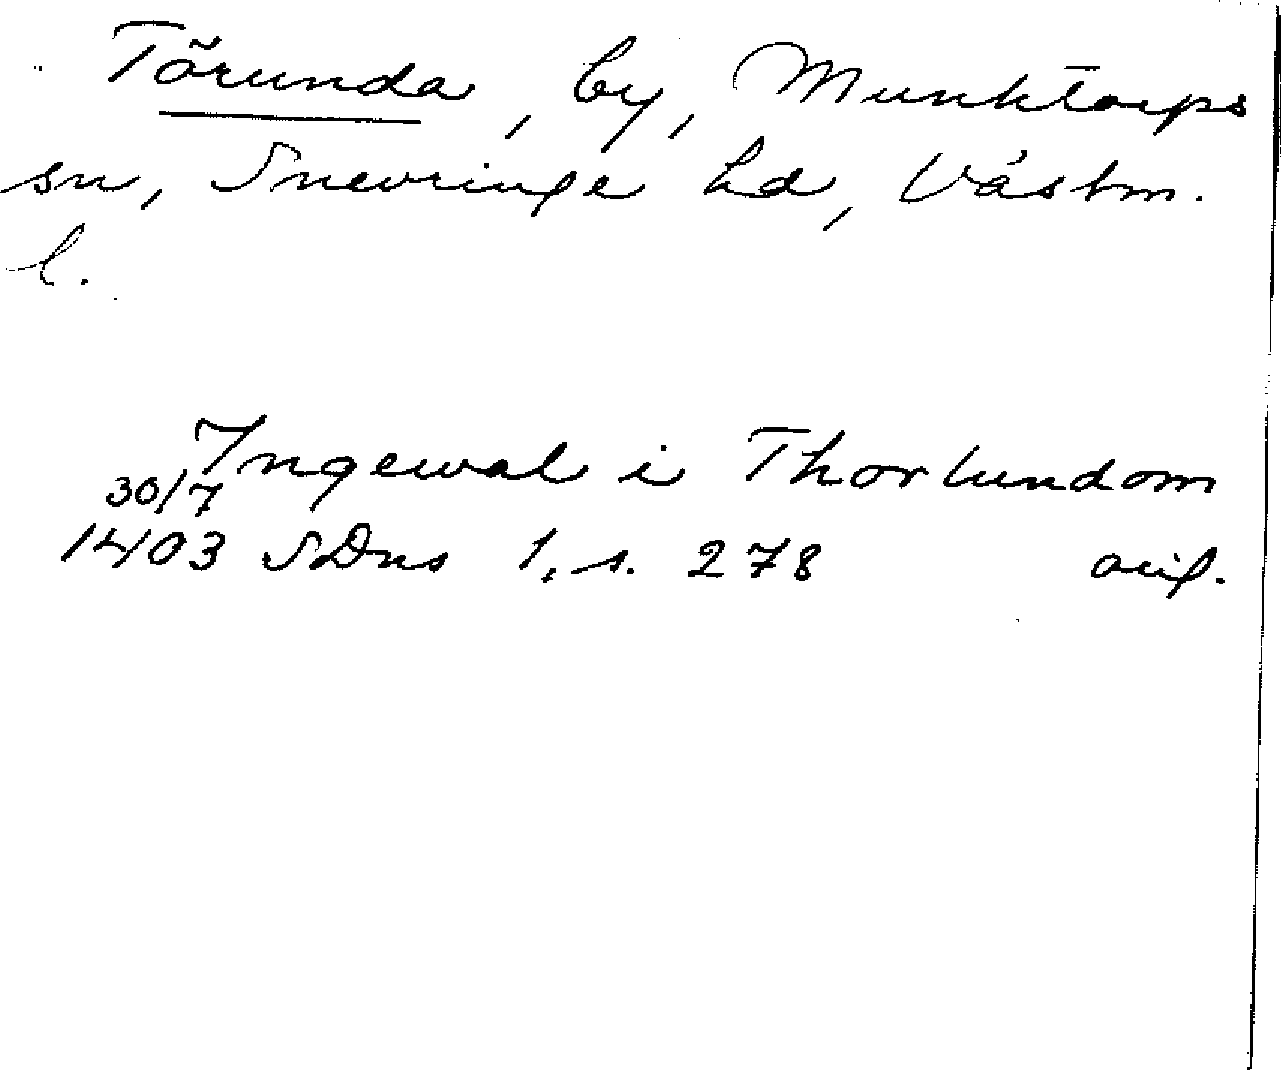 Törunda, by, Munktorps
sn, Snevringe hd, Västm.
l.
Ingewal i Thorlundom
30/7
1403 SDns 1, s. 278 orig.